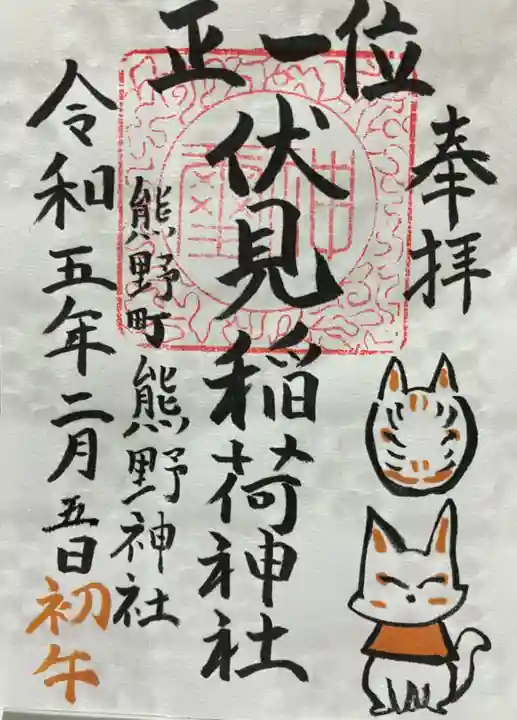 奉拝
正一位
伏見稲荷神社
熊野町熊野神社
令和五年二月五日
初午